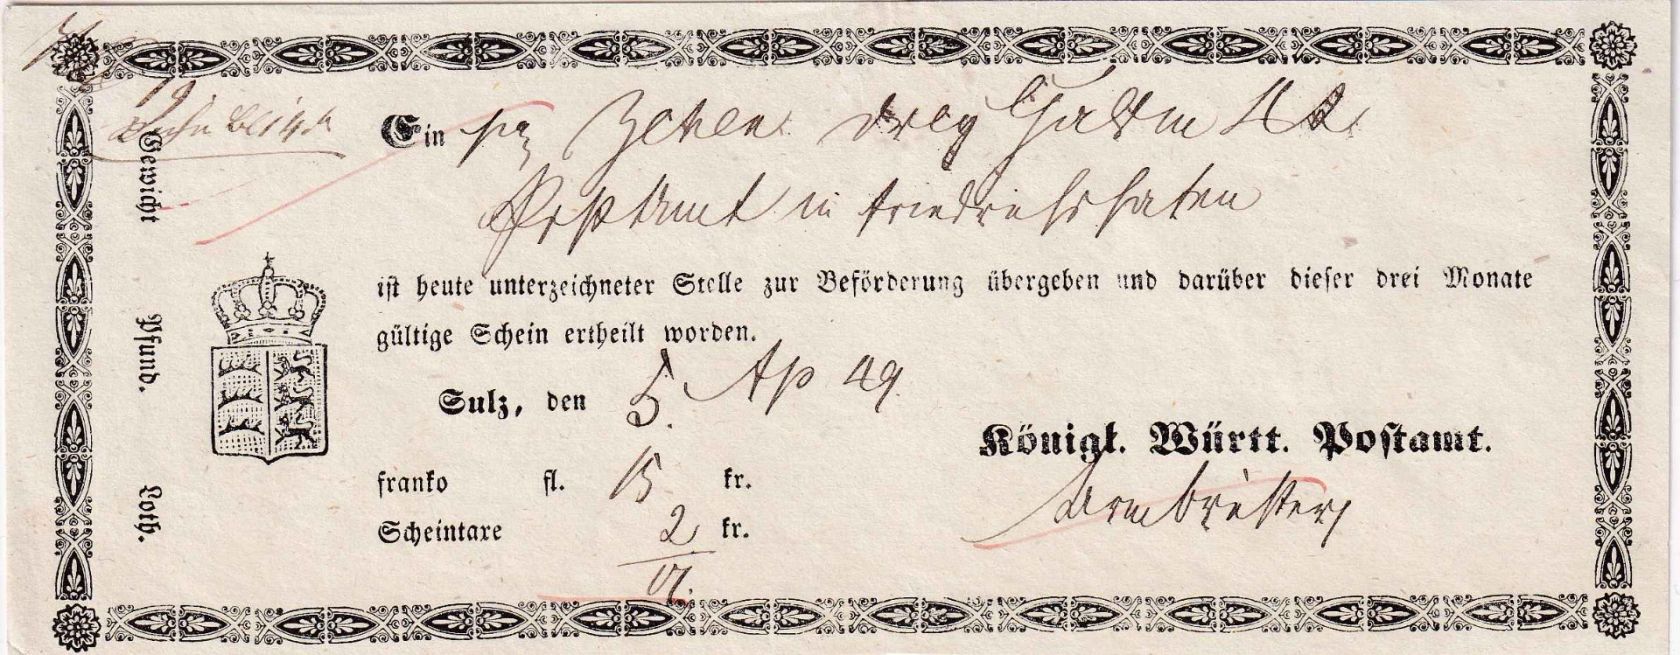 Ein
Postamt in Friedrichshafen
ist heute unterzeichneter Stelle zur Beförderung übergeben und darüber dieser drei Monate
gültige Schein ertheilt worden.
Sulz, den 5. Ap 49.
Königl. Württ. Postamt.
franko fl. 15 kr.
Scheintaxe 2 kr.
17.
Armbrüster
Gewicht Pfund. Loth.